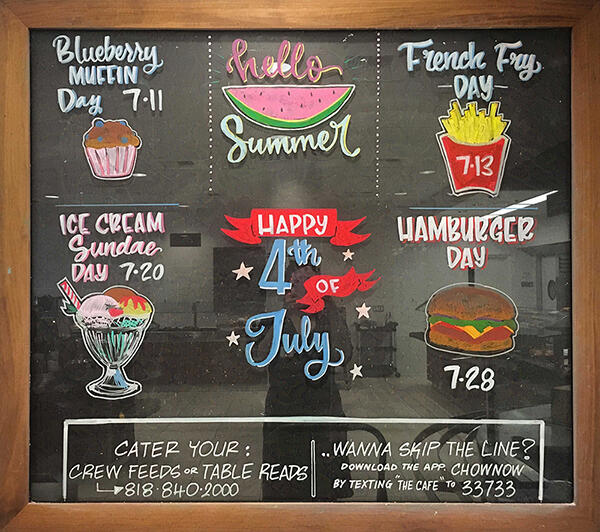 Blueberry
MUFFIN
Day 7·11
hello
Summer
French Fry
DAY
7·13
ICE CREAM
Sundae
DAY 7·20
HAPPY
4th
OF
July
HAMBURGER
DAY
7·28
CATER YOUR:
CREW FEEDS OR TABLE READS
818·840·2000
..WANNA SKIP THE LINE?
DOWNLOAD THE APP. CHOWNOW
BY TEXTING "THE CAFE" TO 33733